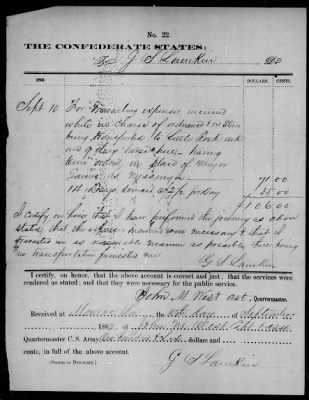 No. 22.
THE CONFEDERATE STATES:
To G S Lamkin Dr
186
DOLLARS. CENTS.
Sept 10 For Travelling expenses incured
while in charge of ordnance & ord Stores
being transported to Little Rock ark
and 9 days horse hire having
been ordered in place of Major
as Messenger 71.00
14 Days Service at 2 1/2 per Day 35.00
$106.00
I certify on honor that I have performed the journey as above
stated, that the expenses incurred were necessary & that I
travelled in as reasonable manner as possible, there being
no transportation furnished me
G S Lamkin
I certify, on honor, that the above account is correct and just; that the services were
rendered as stated; and that they were necessary for the public service.
John M West act. Quartermaster.
Received at Monroe La. the day of September
1862, of John M. West Capt & act
Quartermaster C. S. Army, One hundred & Six dollars and
cents, in full of the above account.
(SIGNED IN DUPLICATE.)
G S Lamkin